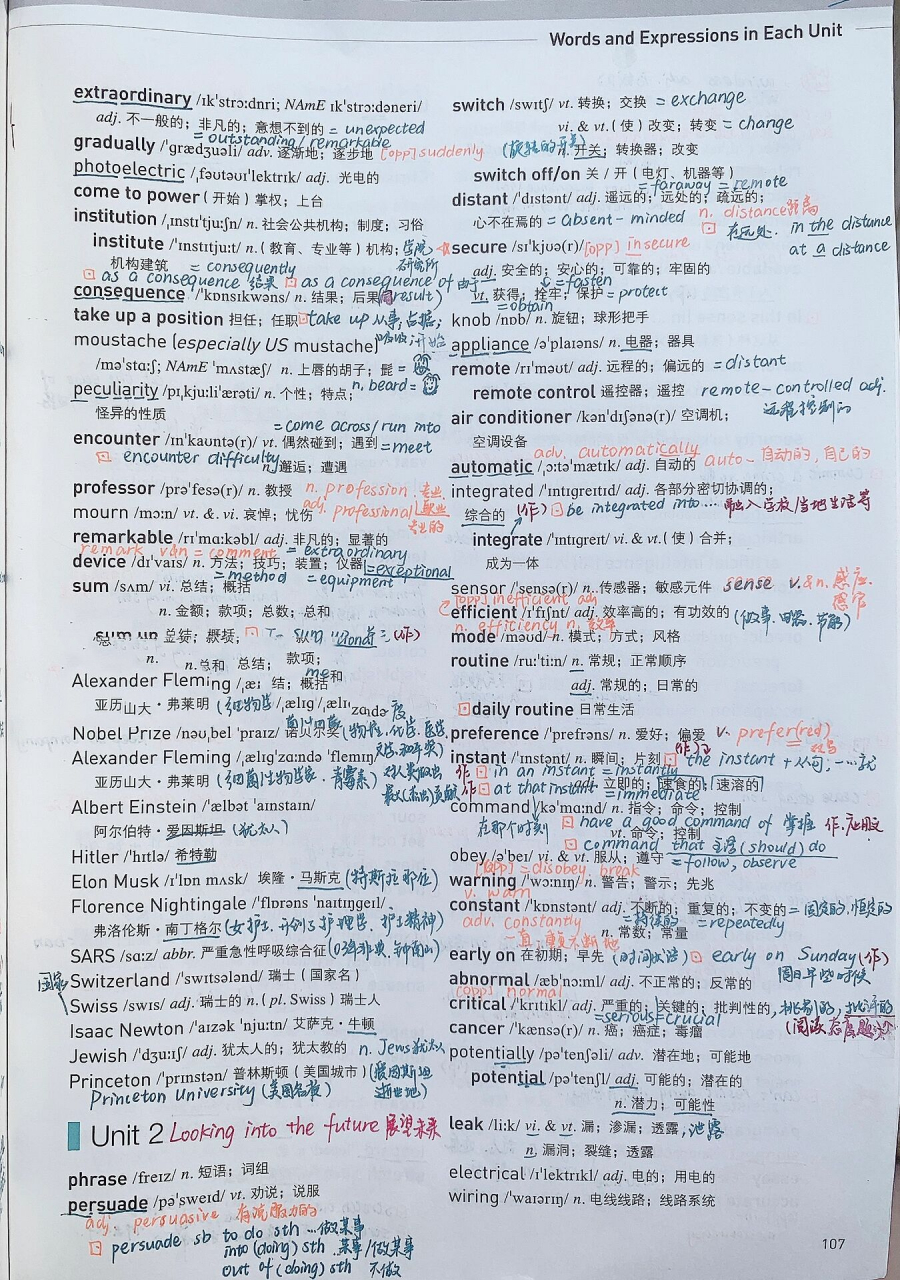 Words and Expressions in Each Unit
extraordinary /ɪk'strɔːdnri; NAmE ɪk'strɔːdəneri/
adj. 不一般的；非凡的；意想不到的 = unexpected
= outstanding / remarkable
gradually /'grædʒuəli/ adv. 逐渐地；逐步地 [opp] suddenly
photoelectric /ˌfəʊtəʊɪ'lektrɪk/ adj. 光电的
come to power (开始) 掌权；上台
institution /ˌɪnstɪ'tjuːʃn/ n. 社会公共机构；制度；习俗
institute /'ɪnstɪtjuːt/ n. (教育、专业等) 机构；学院
机构建筑 = consequently 研究所
as a consequence 结果 as a consequence of 由于
consequence /'kɒnsɪkwəns/ n. 结果；后果 (同result)
take up a position 担任；任职 take up 从事，占据；
moustache (especially US mustache) 吸收；开始
/mə'stɑːʃ; NAmE 'mʌstæʃ/ n. 上唇的胡子；髭 =
peculiarity /pɪˌkjuːli'ærəti/ n. 个性；特点； n. beard =
怪异的性质
= come across/run into
encounter /ɪn'kaʊntə(r)/ vt. 偶然碰到；遇到 = meet
encounter difficulty n. 邂逅；遭遇
professor /prə'fesə(r)/ n. 教授 n. profession 专业
mourn /mɔːn/ vt. & vi. 哀悼；忧伤 adj. professional 职业
专业的
remarkable /rɪ'mɑːkəbl/ adj. 非凡的；显著的
remark v&n = comment = extraordinary
device /dɪ'vaɪs/ n. 方法；技巧；装置；仪器 = exceptional
= method = equipment
sum /sʌm/ vi. 总结；概括
n. 金额；款项；总数；总和
sum up
n. n.总和 总结； 款项；
Alexander Fleming
亚历山大・弗莱明 (细
Nobel Prize /nəʊˌbel 'praɪz/ 诺贝尔奖 (物理、化学、医学、
Alexander Fleming /ˌælɪg'zɑːndə 'flemɪŋ/ 文学、和平奖)
亚历山大・弗莱明 (细菌生物学家、青霉素) 对人类做出
Albert Einstein /'ælbət 'aɪnstaɪn/ 最大(杰出)贡献
阿尔伯特・爱因斯坦 (犹太人)
Hitler /'hɪtlə/ 希特勒
Elon Musk /ɪ'lɒn mʌsk/ 埃隆・马斯克 (特斯拉那位)
Florence Nightingale /'flɒrəns 'naɪtɪŋgeɪl/
弗洛伦斯・南丁格尔 (女护士、开创了护理学、护士精神)
SARS /sɑːz/ abbr. 严重急性呼吸综合征 (03年非典、钟南山)
国家 Switzerland /'swɪtsələnd/ 瑞士 (国家名)
Swiss /swɪs/ adj. 瑞士的 n. (pl. Swiss) 瑞士人
Isaac Newton /'aɪzək 'njuːtn/ 艾萨克・牛顿
Jewish /'dʒuːɪʃ/ adj. 犹太人的；犹太教的 n. Jews 犹太人
Princeton /'prɪnstən/ 普林斯顿 (美国城市) (爱因斯坦
Princeton University (美国名校) 逝世地)
Unit 2 Looking into the future 展望未来
phrase /freɪz/ n. 短语；词组
persuade /pə'sweɪd/ vt. 劝说；说服
adj. persuasive 有说服力的
persuade sb to do sth …做某事
into (doing) sth 某事/做某事
out of (doing) sth 不做
switch /swɪtʃ/ vt. 转换；交换 = exchange
vi. & vt. (使) 改变；转变 = change
(旋转的开关) n. 开关；转换器；改变
switch off/on 关 / 开 (电灯、机器等)
= faraway = remote
distant /'dɪstənt/ adj. 遥远的；远处的；疏远的；
心不在焉的 = absent-minded n. distance 距离
在远处. in the distance
secure /sɪ'kjʊə(r)/ [opp] insecure at a distance
adj. 安全的；安心的；可靠的；牢固的
= fasten
vt. 获得；拴牢；保护 = protect
= obtain
knob /nɒb/ n. 旋钮；球形把手
appliance /ə'plaɪəns/ n. 电器；器具
remote /rɪ'məʊt/ adj. 远程的；偏远的 = distant
remote control 遥控器；遥控 remote-controlled adj.
远程控制的
air conditioner /kən'dɪʃənə(r)/ 空调机；
空调设备
adv. automatically
automatic /ˌɔːtə'mætɪk/ adj. 自动的 auto- 自动的，自己的
integrated /'ɪntɪgreɪtɪd/ adj. 各部分密切协调的；
综合的 (作) be integrated into … 融入学校/当地生活等
integrate /'ɪntɪgreɪt/ vi. & vt. (使) 合并；
成为一体
sensor /'sensə(r)/ n. 传感器；敏感元件 sense v. & n. 感应.
感官
[opp] inefficient adj
efficient /ɪ'fɪʃnt/ adj. 效率高的；有功效的 (做事、
n. efficiency n. 效率
mode /məʊd/ n. 模式；方式；风格
routine /ruː'tiːn/ n. 常规；正常顺序
adj. 常规的；日常的
daily routine 日常生活
preference /'prefrəns/ n. 爱好；偏爱 v. prefer(red)
instant /'ɪnstənt/ n. 瞬间；片刻 the instant + 从句，一…就
作 in an instant = instantly
adj. 立即的；速食的；速溶的
作 at that instant = immediate
command /kə'mɑːnd/ n. 指令；命令；控制
在那个时刻 have a good command of 掌握 作.应用文
vt. 命令；控制
command that 主语 (should) do
obey /ə'beɪ/ vi. & vt. 服从；遵守 = follow, observe
[opp] = disobey, break
warning /'wɔːnɪŋ/ n. 警告；警示；先兆
v. warn
constant /'kɒnstənt/ adj. 不断的；重复的；不变的 = 固定的，恒定的
adv. constantly = 持续的 = repeatedly
一直，重复不断地 n. 常数；常量
early on 在初期；早先 (时间状语) early on Sunday (作)
周日早些时候
abnormal /æb'nɔːml/ adj. 不正常的；反常的
[opp] normal
critical /'krɪtɪkl/ adj. 严重的；关键的；批判性的，挑剔的，批评的
= serious = crucial (阅读态度题)
cancer /'kænsə(r)/ n. 癌；癌症；毒瘤
potentially /pə'tenʃəli/ adv. 潜在地；可能地
potential /pə'tenʃl/ adj. 可能的；潜在的
n. 潜力；可能性
leak /liːk/ vi. & vt. 漏；渗漏；透露，泄露
n. 漏洞；裂缝；透露
electrical /ɪ'lektrɪkl/ adj. 电的；用电的
wiring /'waɪərɪŋ/ n. 电线线路；线路系统
107